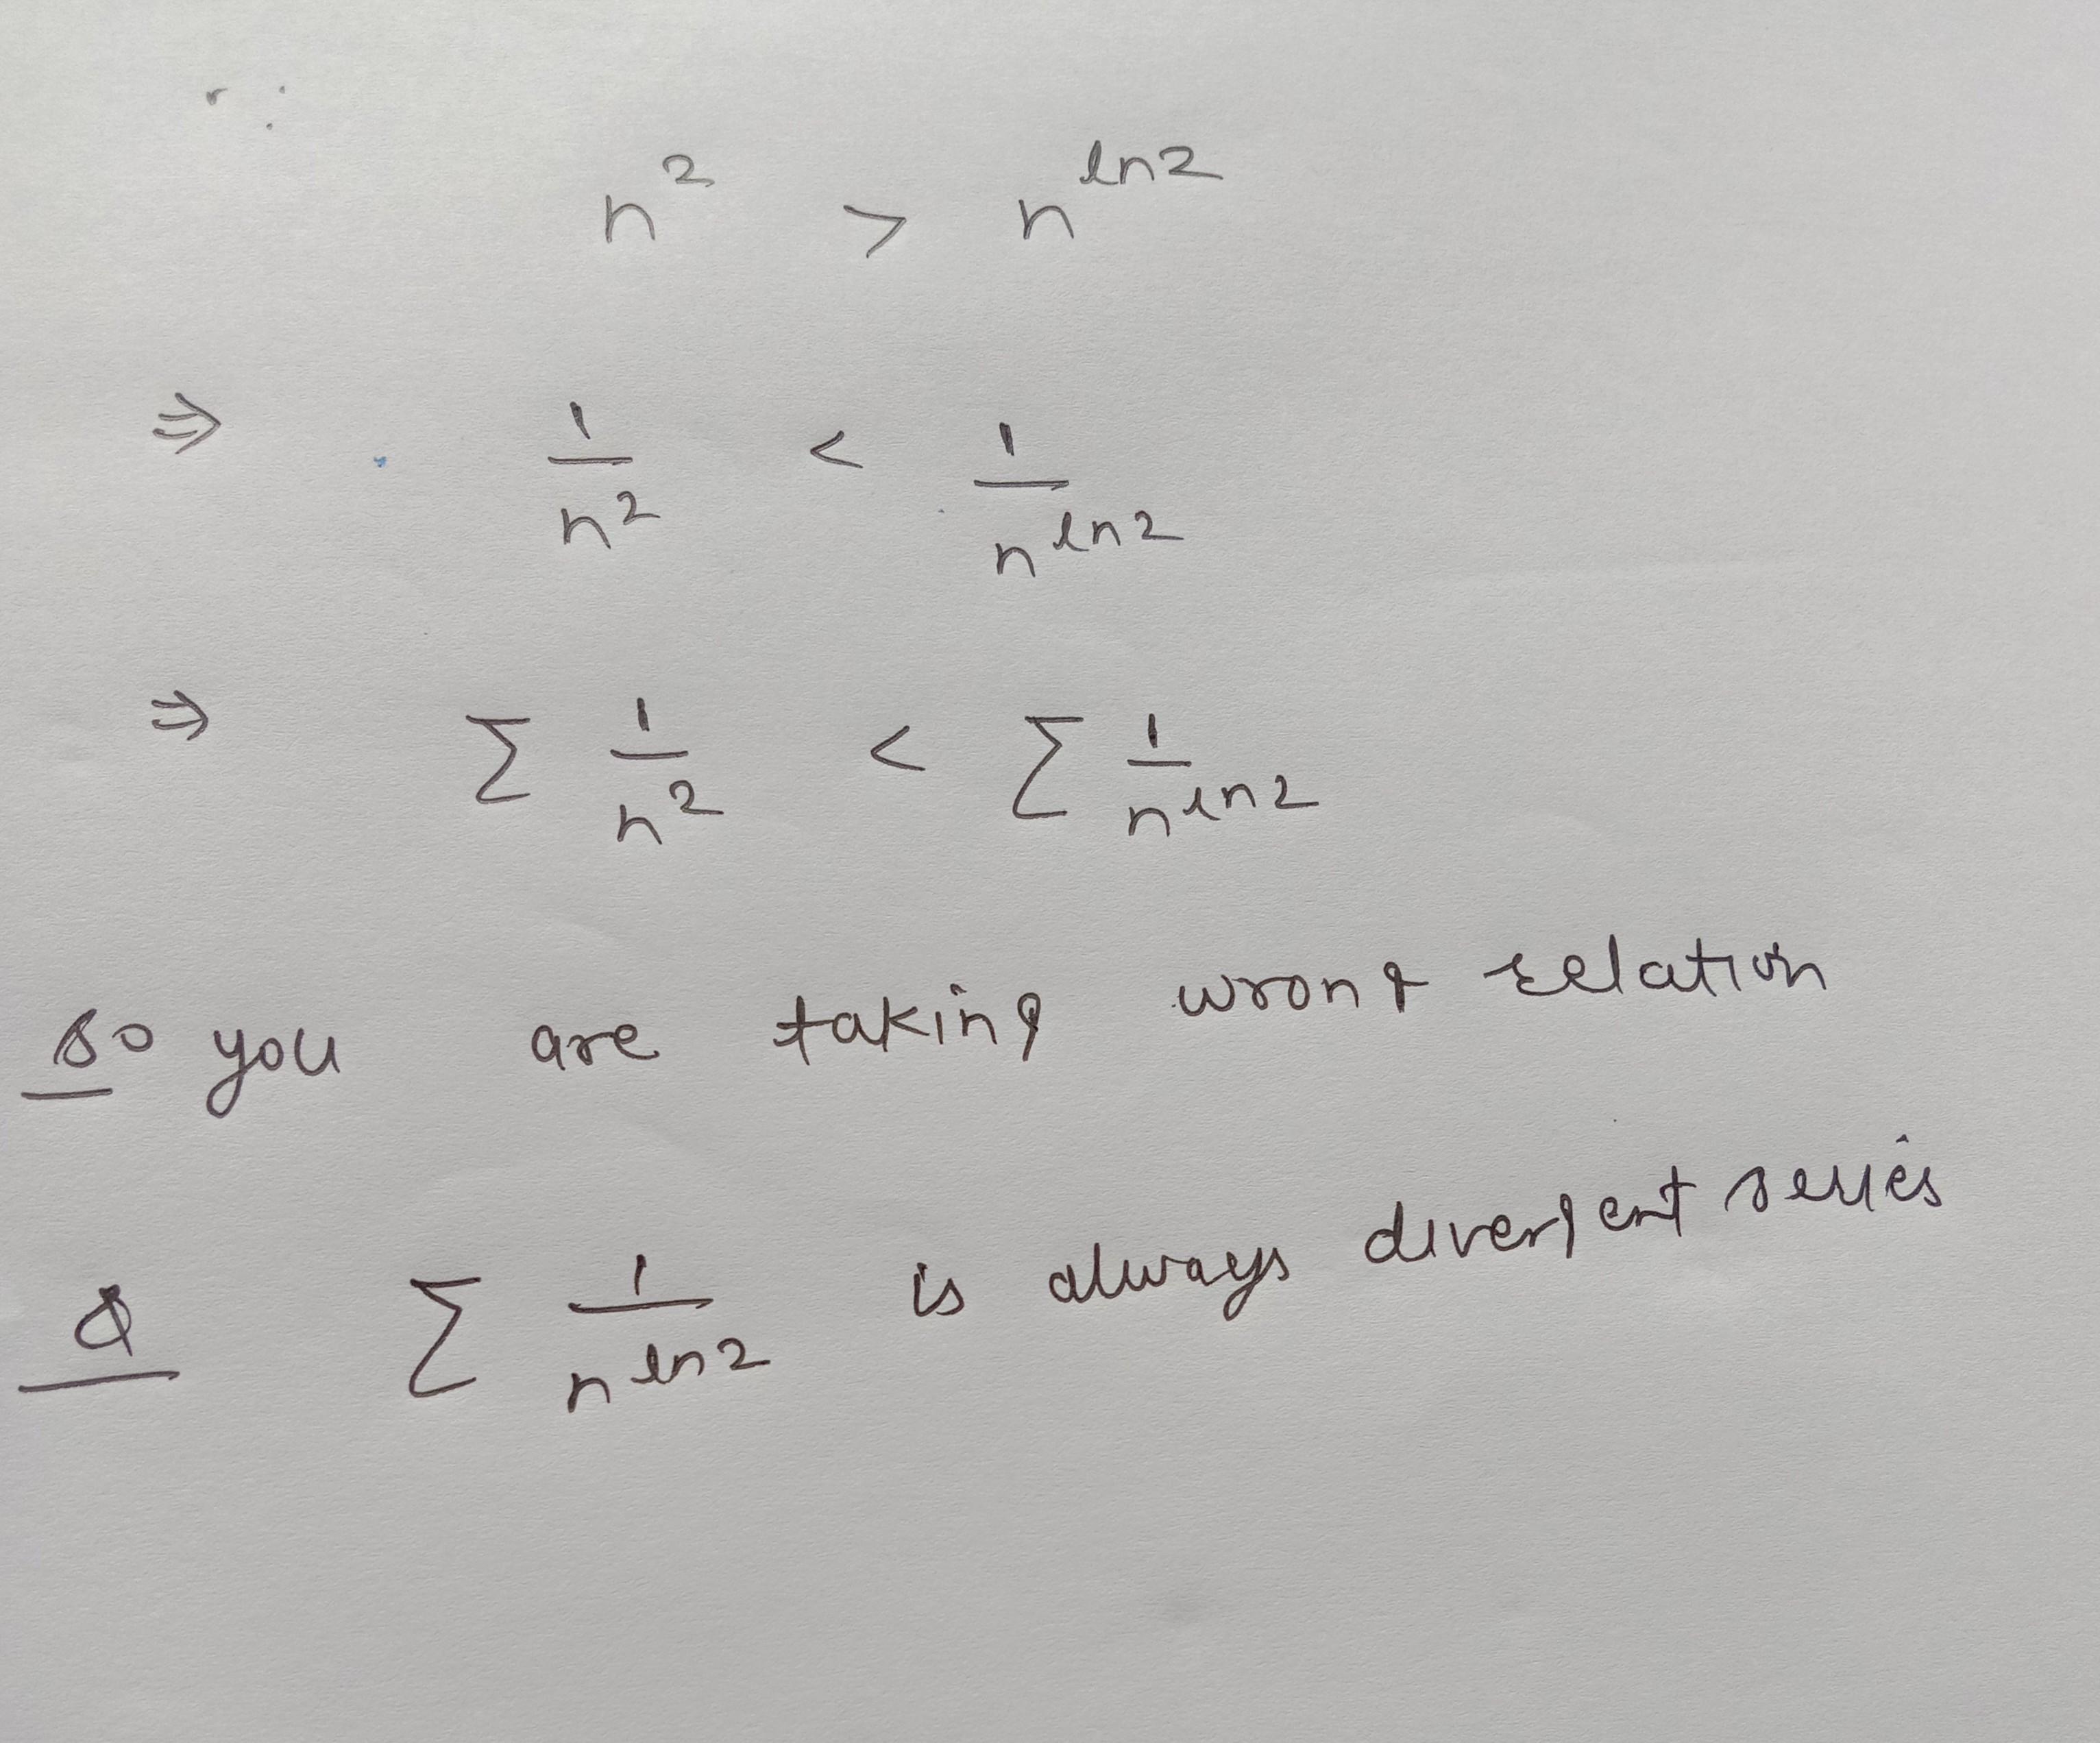 n² > n^ln2
⇒ 1/n² < 1/n^ln2
⇒ Σ 1/n² < Σ 1/n^ln2
so you are taking wrong relation
& Σ 1/n^ln2 is always divergent series